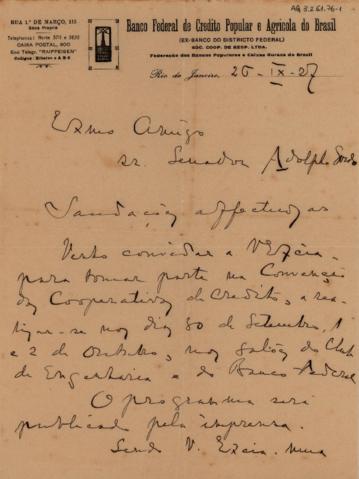 AG 3.2.61.76-1
RUA 1º DE MARÇO, 111
Séde Propria
CAIXA POSTAL, 900
End. Telegr. "RAIFFEISEN"
Banco Federal de Credito Popular e Agricola do Brasil
(EX-BANCO DO DISTRICTO FEDERAL)
SOC. COOP. DE RESP. LTDA.
Federação dos Bancos Populares e Caixas Ruraes do Brasil
Rio de Janeiro, 26-IX-27
Exmo Amigo
sr. Senador Adolpho Gordo
Saudações affectuosas
Venho convidar a V Excia.
para tomar parte na Convenção
das Cooperativas de Credito, a rea-
lizar-se nos dias 30 de Setembro, 1
e 2 de Outubro, nos salões do Club
de Engenharia e do Banco Federal
O programma será
publicado pela imprensa.
Sendo V. Excia. uma